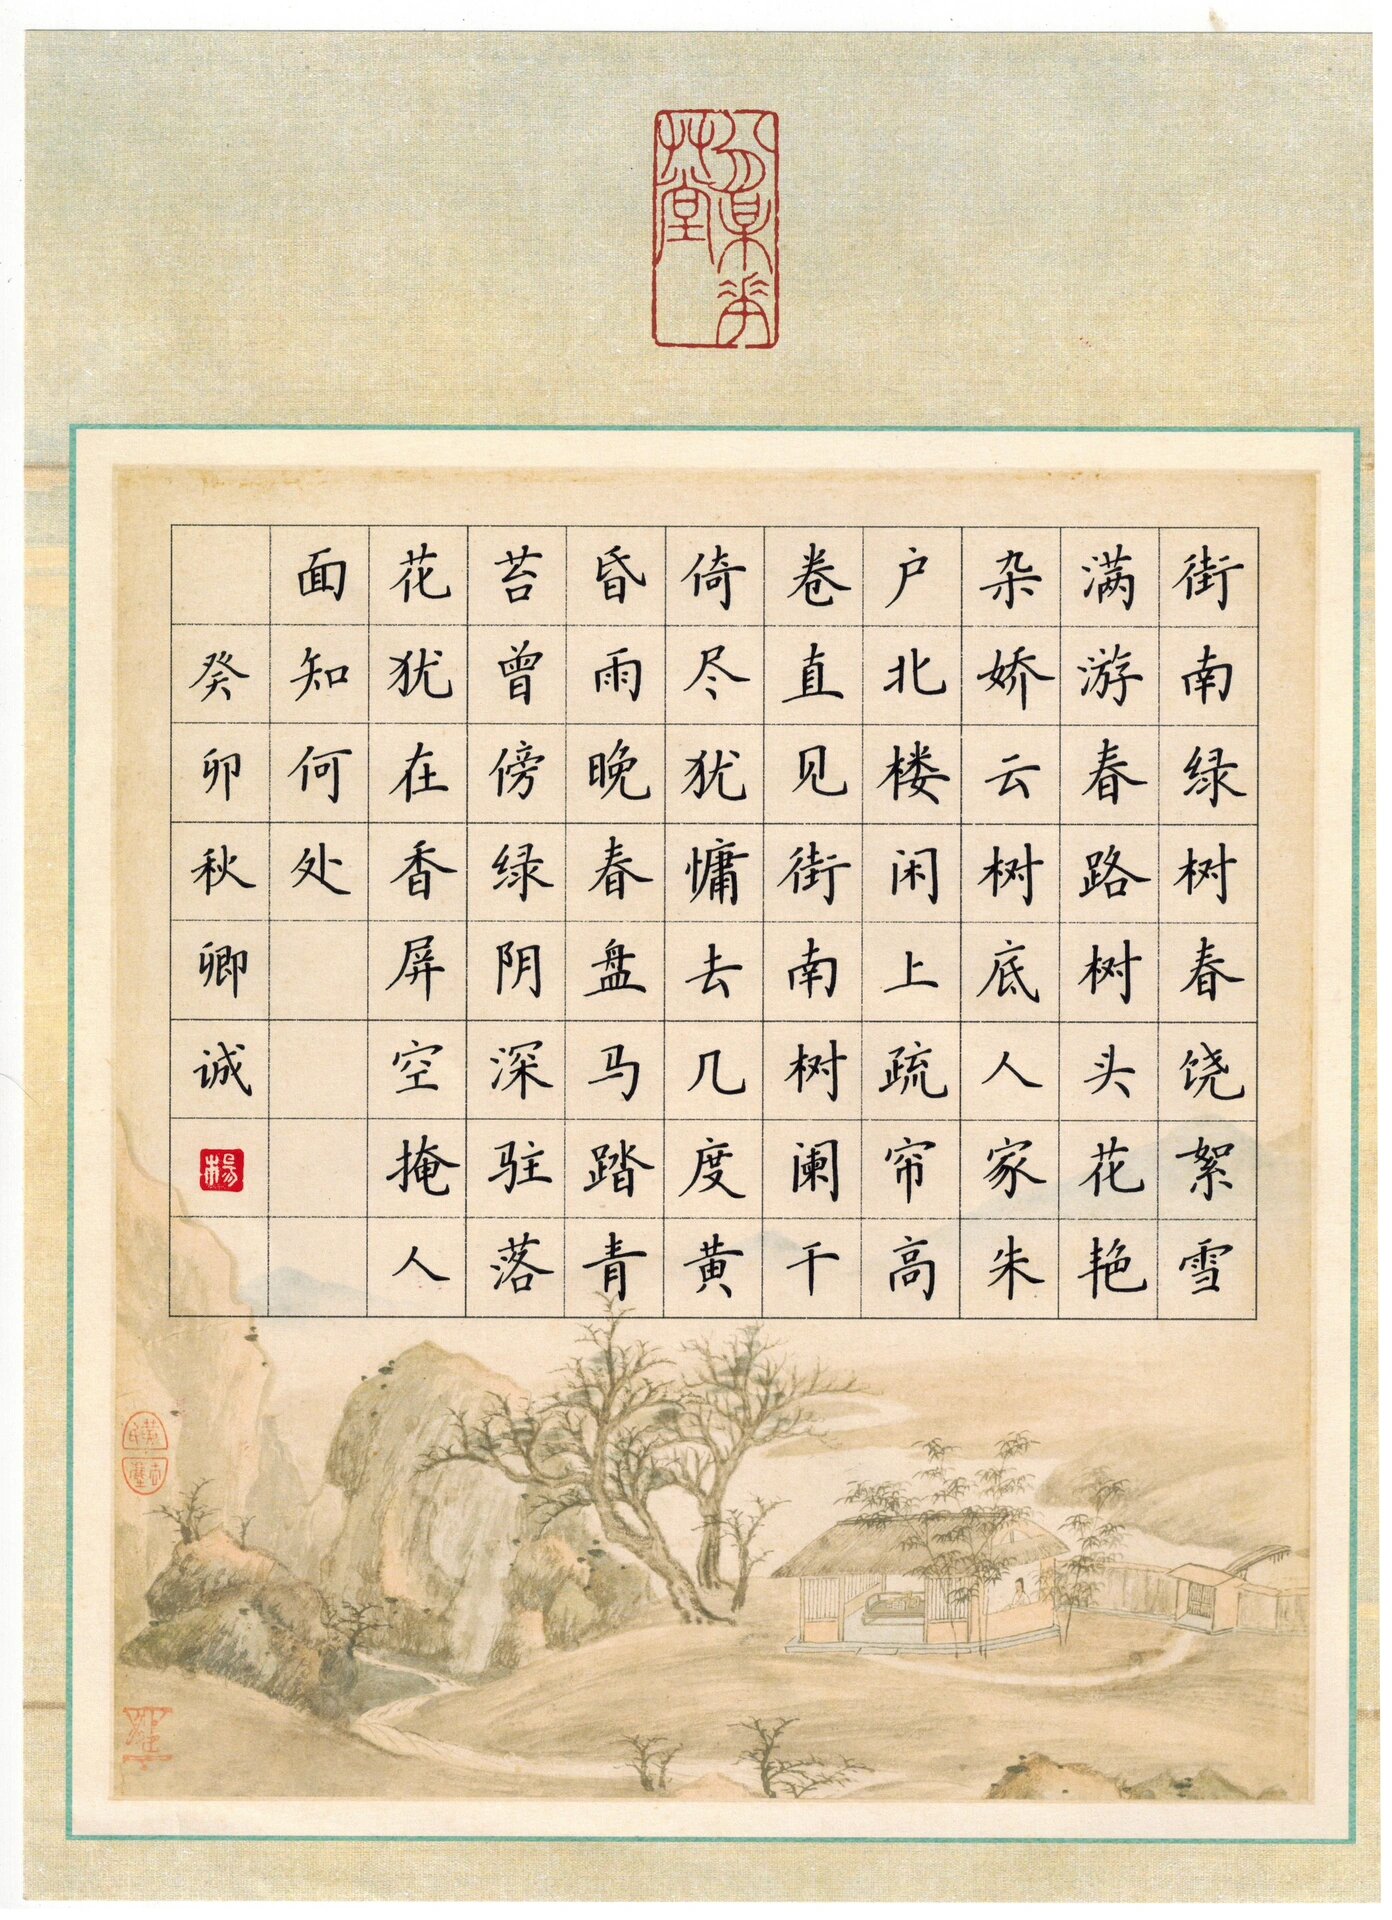 街南绿树春饶絮雪
满游春路树头花艳
杂娇云树底人家朱
户北楼闲上疏帘高
卷直见街南树阑干
倚尽犹慵去几度黄
昏雨晚春盘马踏青
苔曾傍绿阴深驻落
花犹在香屏空掩人
面知何处
癸卯秋卿诚
杨